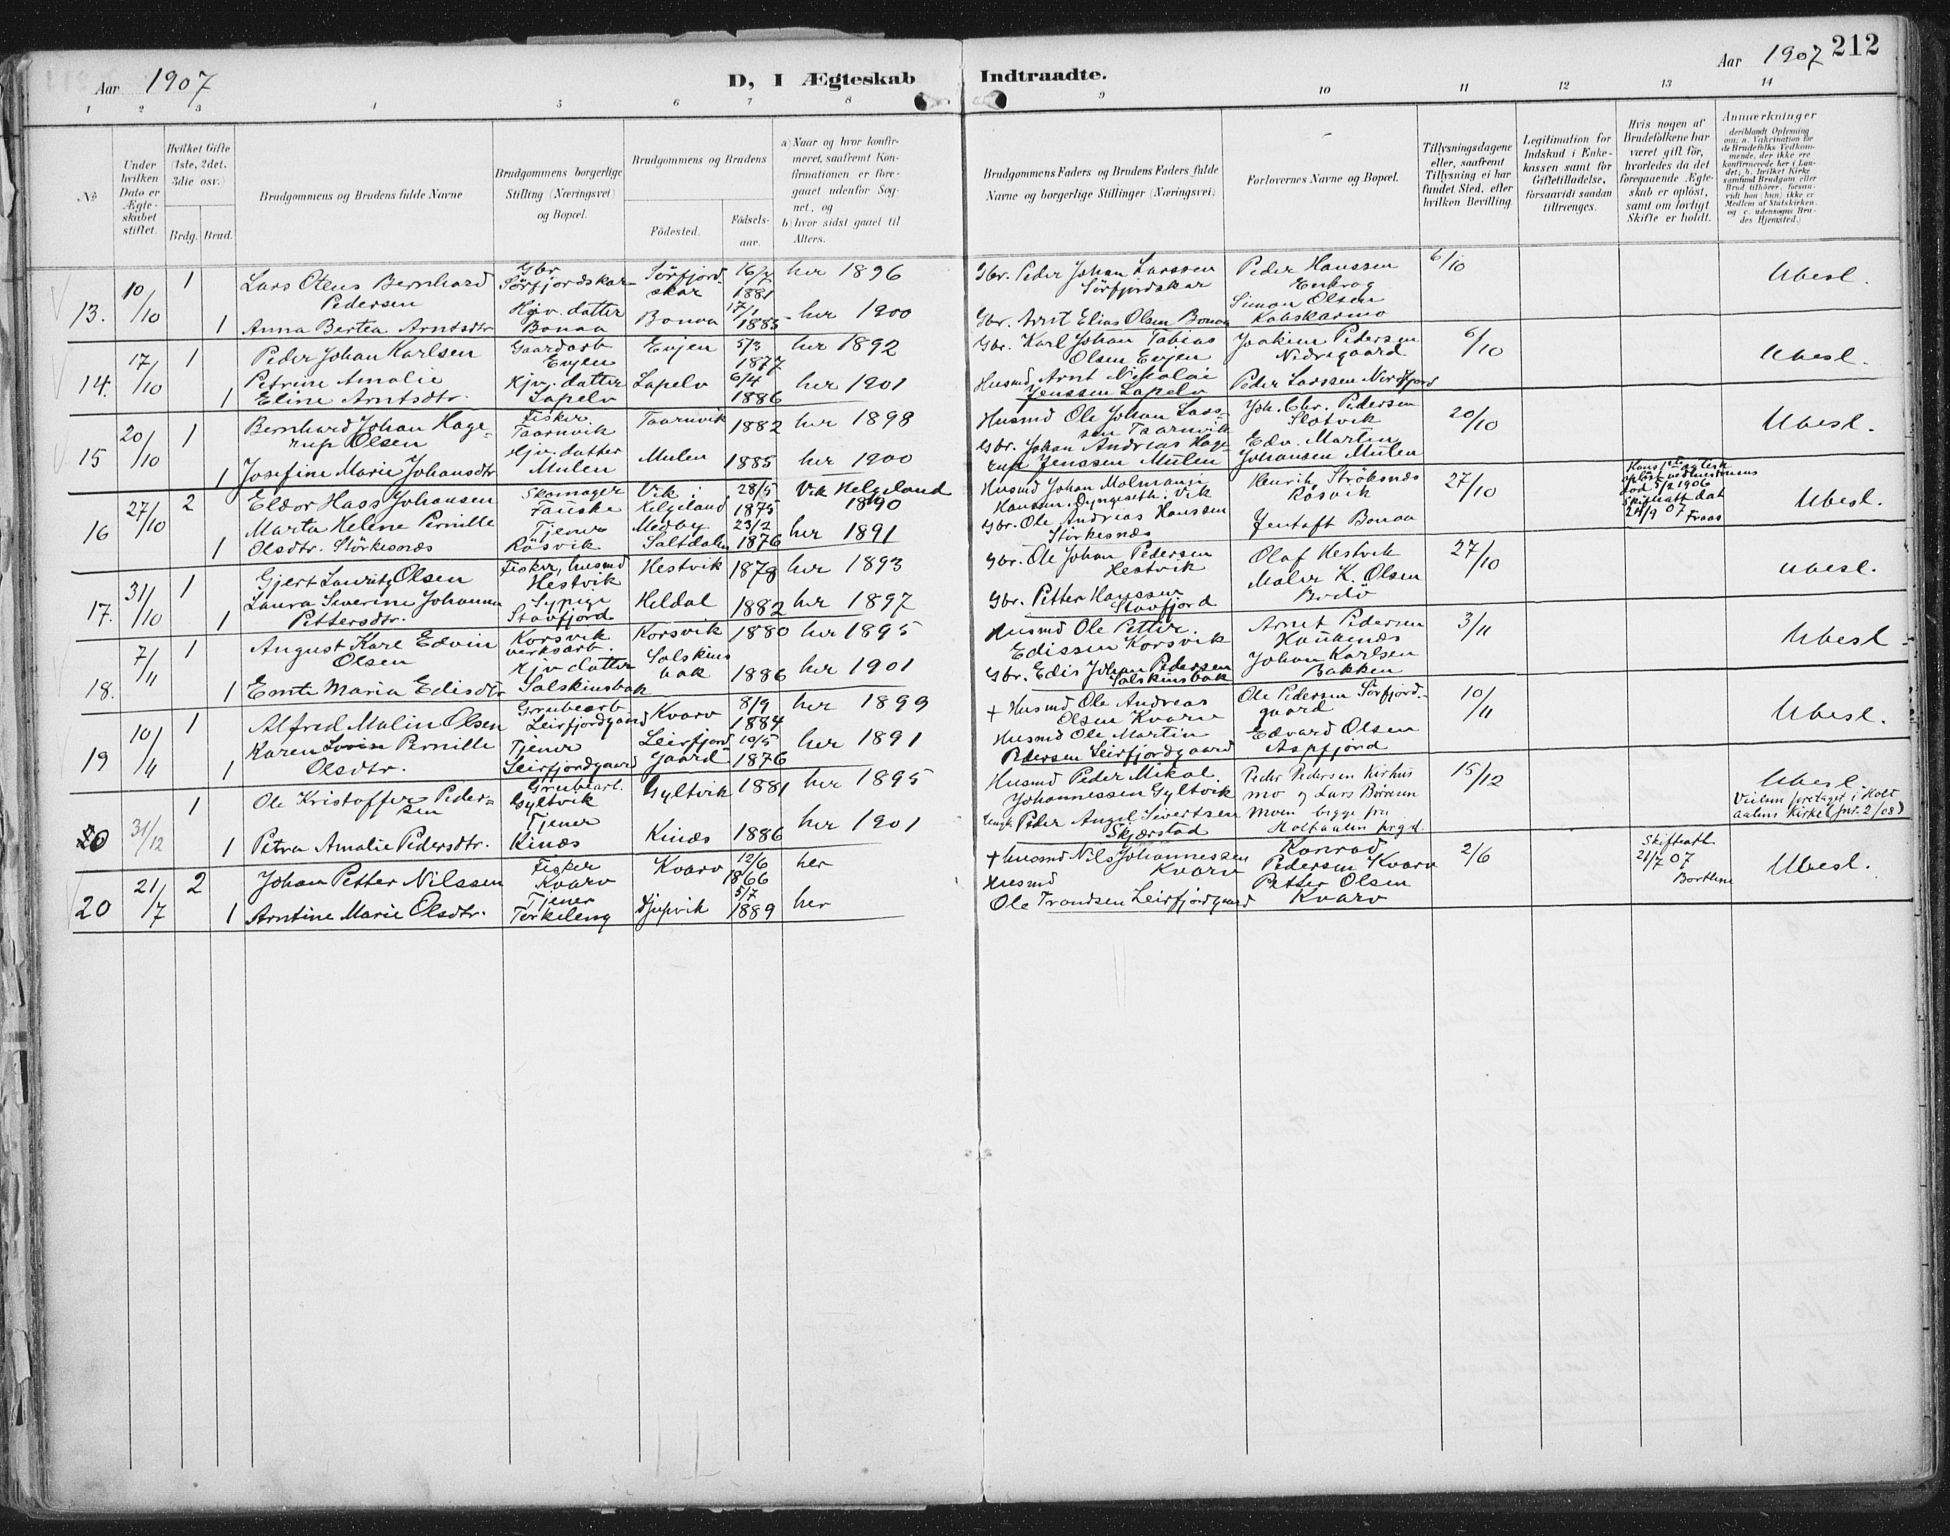 Aar 1907
D, I Ægteskab
Indtraadte.
Aar 1907 212
1 2 3 4 5 6 7 8 9 10 11 12 13 14
No
Under hvilken Dato er Ægteskabet stiftet.
Hvilket Gifte (1ste, 2det, 3die osv.)
Brdg. Brud.
Brudgommens og Brudens fulde Navne
Brudgommens borgerlige Stilling (Næringsvei) og Bopæl.
Brudgommens og Brudens
Fødested.
Fødselsaar.
a) Naar og hvor konfirmeret, saafremt Konfirmationen er foregaaet udenfor Sognet, og
b) hvor sidst gaaet til Alters.
Brudgommens Faders og Brudens Faders fulde Navne og borgerlige Stillinger (Næringsvei)
Forlovernes Navne og Bopæl.
Tillysningsdagene eller, saafremt Tillysning ei har fundet Sted, efter hvilken Bevilling.
Legitimation for Indskud i Enkekassen samt for Giftetilladelse, forsaavidt saadan tiltrænges.
Hvis nogen af Brudefolkene har været gift før, hvorledes da det foregaaende Ægteskab er opløst, samt om lovligt Skifte er holdt.
Anmærkninger
(deriblandt Oplysning om: a. Vakcination for de Brudefolks Vedkommende, der ikke ere konfirmerede her i Landet; b. hvilket Kirkesamfund Brudgom eller Brud tilhører, forsaavidt han (hun) ikke er Medlem af Statskirken, og c. udensogns Brudes Hjemsted.)
13. 10/10 1 Lars Oteus Bernhard Pedersen Gbr Sörfjordskar Sörfjordskar 16/7 1881 her 1896 Gbr. Peder Johan Larssen Sörfjordskar Peder Hanssen Enkrog 6/10 Ubesl.
1 Anna Bertea Arntsdtr Hjv. datter Bonaa Bonaa 17/1 1885 her 1900 Gbr. Arnt Elias Olsen Bonaa Simon Olsen Kobskarmo
14. 17/10 1 Peder Johan Karlsen Gaardarb Evjen Evjen 5/3 1877 her 1892 Gbr. Karl Johan Tobias Olsen Evjen Joakim Pedersen Nedregaard 6/10 Ubesl.
1 Petrine Amalie Eline Arntsdtr. Hjv. datter Lapelv Lapelv 6/4 1886 her 1901 Husmd Arnt Nikolai Jenssen Lapelv Peder Larssen Nordfjord
15 20/10 1 Bernhard Johan Hagerup Olsen Fisker Taarnvik Taarnvik 1882 her 1898 Husmd Ole Johan Lassen Taarnvik Joh. Chr. Pedersen Slotvik 20/10 Ubesl.
1 Josefine Marie Johansdtr Hjv. datter Mulen Mulen 1885 her 1900 Gbr. Johan Andreas Hagerup Jenssen Mulen Edv. Martin Johansen Mulen
16 27/10 2 Eldor Hass Johansen Skomager Fauske Vik i Helgeland 28/5 1875 Vik Helgeland 1890 Husmd Johan Molmangi Hanssen Dyngeseth. Vik Henrik Ströksnes Rösvik 27/10 Hans 1ste Ægtesk opløst ved hustruens död 5/2 1906 Skifteatt dat 24/9 07 Fraas Ubesl.
1 Marta Helene Pernille Olsdtr. Störkesnæs Tjener Rösvik Medby Saltdalen 23/2 1876 her 1891 Gbr. Ole Andreas Hanssen Störkesnæs Jentoft Bonaa
17. 31/10 1 Gjert Lauritz Olsen Fisker, husmd Hestvik Hestvik 1879 her 1893 Gbr. Ole Johan Pedersen Hestvik Olaf Hestvik 27/10 Ubesl.
1 Laura Severine Johanna Pettersdtr. Sypige Stavfjord Heldal 1882 her 1897 Gbr. Petter Hanssen Stavfjord Maler K. Olsen Bodö
18. 7/11 1 August Karl Edvin Olsen Korsvik verksarb. Korsvik 1880 her 1895 Husmd Ole Petter Edissen Korsvik Arnt Pedersen Haukenæs 3/11 Ubesl
1 Emte Maria Edisdtr Hjv datter Solskinsbak Solskinsbak 1886 her 1901 Gbr. Edis Johan Pedersen Solskinsbak Johan Karlsen Bakken
19 10/11 1 Alfred Malin Olsen Grubearb Leirfjordgaard Kvarv 8/9 1884 her 1899 + Husmd Ole Andreas Olsen Kvarv Ole Pedersen Sörfjordgaard 10/11 Ubesl.
1 Karen Lovise Pernille Olsdtr. Tjener Leirfjordgaard Leirfjordgaard 10/5 1876 her 1891 Husmd Ole Martin Pedersen Leirfjordgaard Edvard Olsen Aspfjord
20 31/12 1 Ole Kristoffer Pedersen Grubearb. Gyltvik Gyltvik 1881 her 1895 Husmd Peder Mikal Johannessen Gyltvik Peder Pedersen Kirkusmo og Lars Börsum Moen begge fra Holtaalen prgd. 15/12 Ubesl. Vielsen foretaget i Holtaalens Kirke (jnr. 2/08)
1 Petra Amalie Pedersdtr. Tjener Kinæs Kinæs 1886 her 1901 Peder Angel Sivertsen Skjærstad
20 21/7 2 Johan Petter Nilssen Fisker Kvarv Kvarv 12/6 1866 her + Husmd Nils Johannessen Kvarv Konrad Pedersen Kvarv 2/6 Skifteatt. 21/7 07 Ubesl.
1 Arntine Marie Olsdtr. Tjener Torkeleng Djupvik 5/7 1889 her Husmd Ole Trondsen Leirfjordgaard Petter Olsen Kvarv